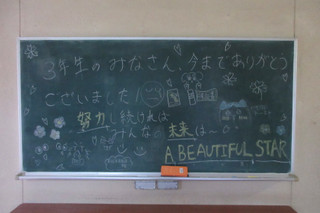 3年生のみなさん、今までありがとう
ございました！
努力し続ければ
みんなの未来は〜
A BEAUTIFUL STAR